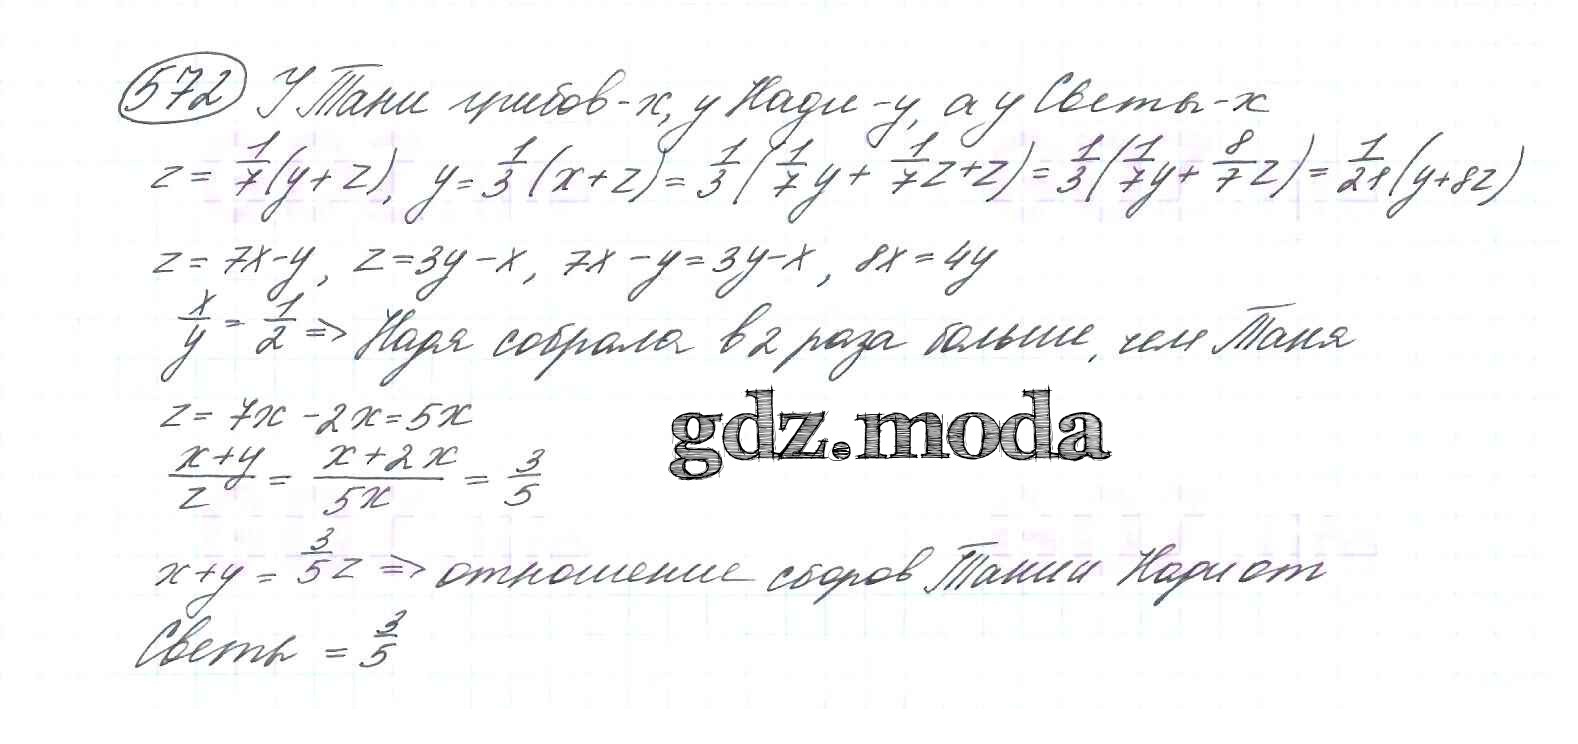 572 У Тани грибов - x, у Нади - y, а у Светы - x
z = 1/7 (y + z), y = 1/3 (x + z) = 1/3 (1/7 y + 1/7 z + z) = 1/3 (1/7 y + 8/7 z) = 1/21 (y + 8z)
z = 7x - y, z = 3y - x, 7x - y = 3y - x, 8x = 4y
x/y = 1/2 => Надя собрала в 2 раза больше, чем Таня
z = 7x - 2x = 5x
gdz.moda
(x + y)/z = (x + 2x)/5x = 3/5
x + y = 3/5 z => отношение сборов Тани и Нади от
Светы = 3/5